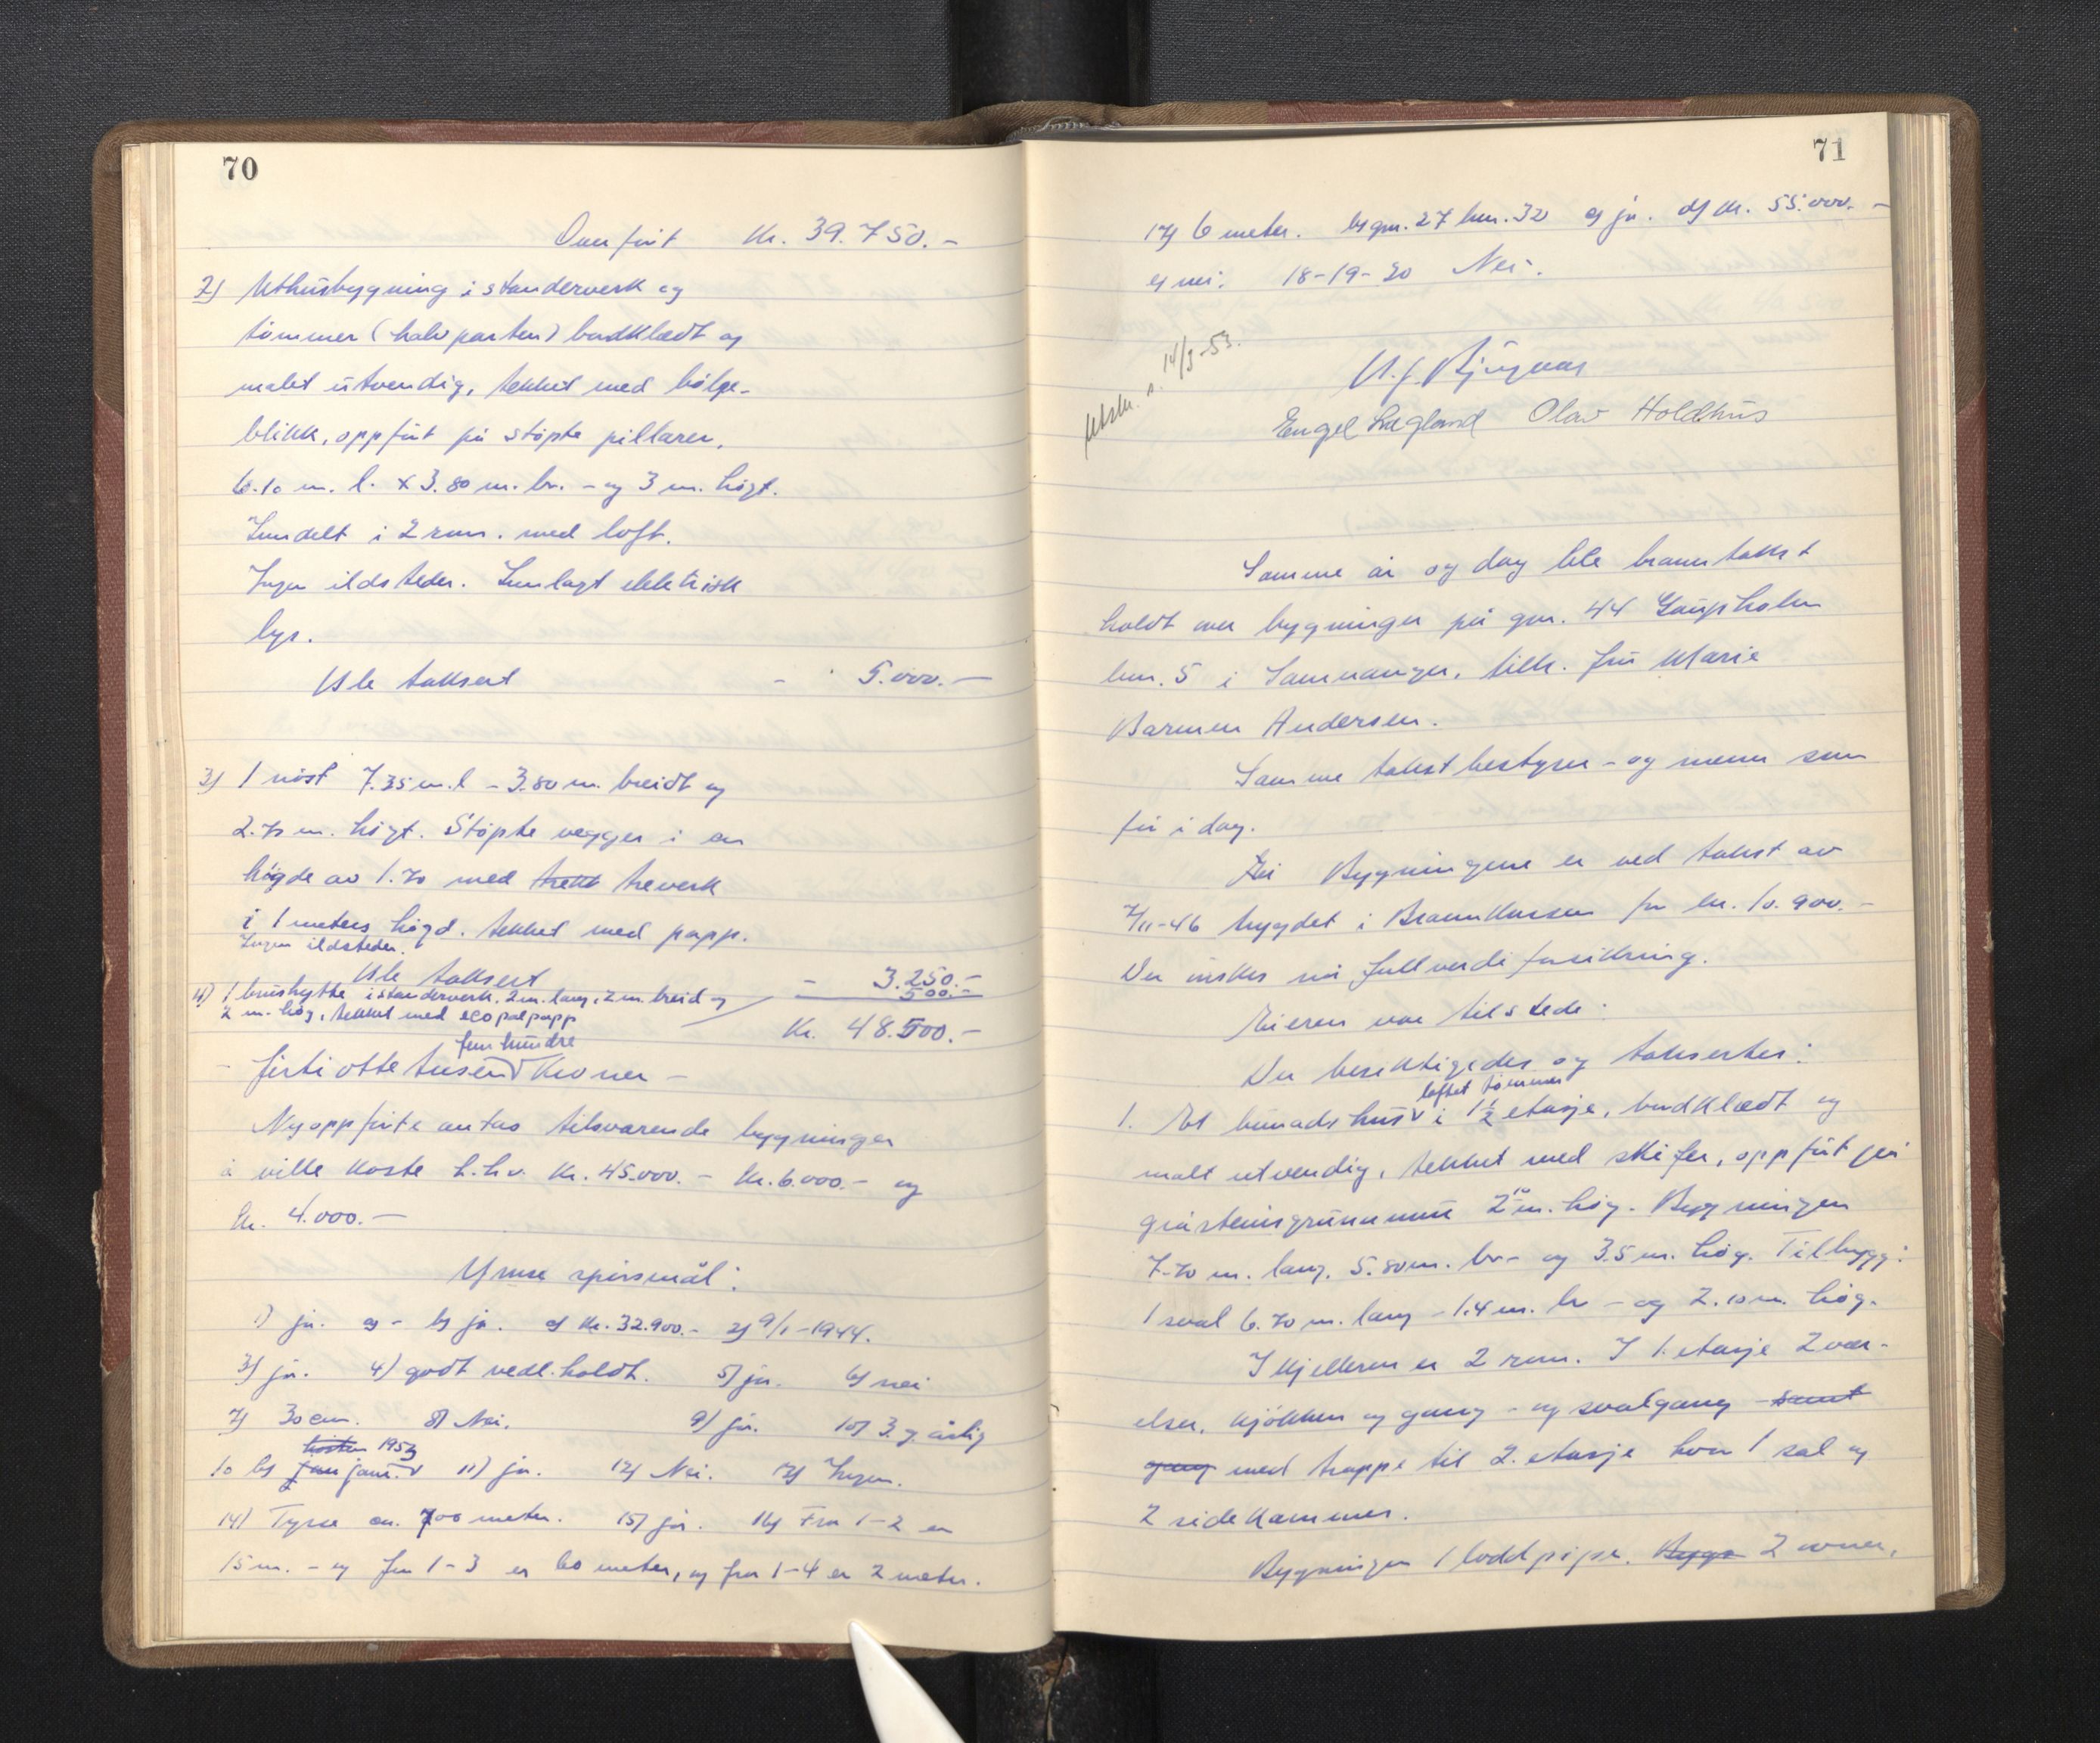 70
Overført Kr. 39.750.-
2) Uthusbygning i standerverk og
tømmer (halvparten) bordklædt og
malet utvendig, tekket med bølge-
blikk, oppført på støpte pillarer,
6.10 m. l. x 3.80 m. br. - og 3 m. høgt.
Inndelt i 2 rum. med loft.
Ingen ildsteder. Innlagt elektrisk
lys.
Ble taksert - 5.000.-
3) 1 nøst 7.35 m. l - 3.80 m. breidt og
2.70 m. høgt. Støpte vegger i en
høgde av 1.70 med trekk treverk
i 1 meters høgd. tekket med papp.
Ingen ildsteder.
Ble taksert - 3.250.-
4) 1 brushytte i standerverk. 2 m. lang, 2 m. breid og 500.-
2 m. høg, tekket med ecopalpapp
Kr. 48.500.-
fem hundre
- førtiotte tusen kroner -
Nyoppførte antas tilsvarende bygninger
å ville koste h.h.v. Kr. 45.000.- Kr. 6.000.- og
Kr. 4.000.-
Ymse spørsmål:
1) ja. a) - b) ja. c) Kr. 32.900.- 2) 9/1-1944.
3) ja. 4) godt vedl.holdt. 5) ja. 6) nei
7) 30 cm. 8) Nei. 9) ja. 10) 3. g. årlig
høsten 1953
10 b) jan. 11) ja. 12) Nei. 13) Ingen.
14) Tysse ca. 700 meter. 15) ja. 16) Fra 1-2 er
15 m. - og fra 1-3 er 60 meter, og fra 1-4 er 2 meter.
71
17) 6 meter. b) gnr. 27 bnr. 32 c) ja. d) Kr. 55.000.-
e) nei. 18-19-20 Nei.
Utskr. s. 14/3-53.
Engel Lægland Olav Holdhus
Samme år og dag ble branntakst
holdt over bygninger på gnr. 44 Gaupholm
bnr. 5 i Samnanger, tilh. fru Marie
Barmen Andersen.
Samme takstbestyrer - og menn som
før i dag.
Bygningene er ved takst av
7/11-46 trygdet i Brannkassen for kr. 10.900.-
Der ønskes nå fullverdiforsikring.
Eieren var tilstede.
Der besiktigedes og taksertes:
loftet tømmer
1. Et bunadshus i 1 1/2 etasje, bordklædt og
malt utvendig, tekket med skifer, oppført på
gråsteinsgrunnmur 2.10 m. høg. Bygningen
7.70 m. lang. 5.80 m. br- og 3.5 m. høg. Tilbygg:
1 sval 6.70 m. lang - 1.4 m. br - og 2.10 m. høg.
I kjelleren er 2 rum. I 1. etasje 2 vær-
elser, kjøkken og gang - og svalgang - samt
gang med trappe til 2. etasje hvor 1 sal og
2 sidekammer.
Bygningen 1 loddpipe. Bygg 2 ovner,